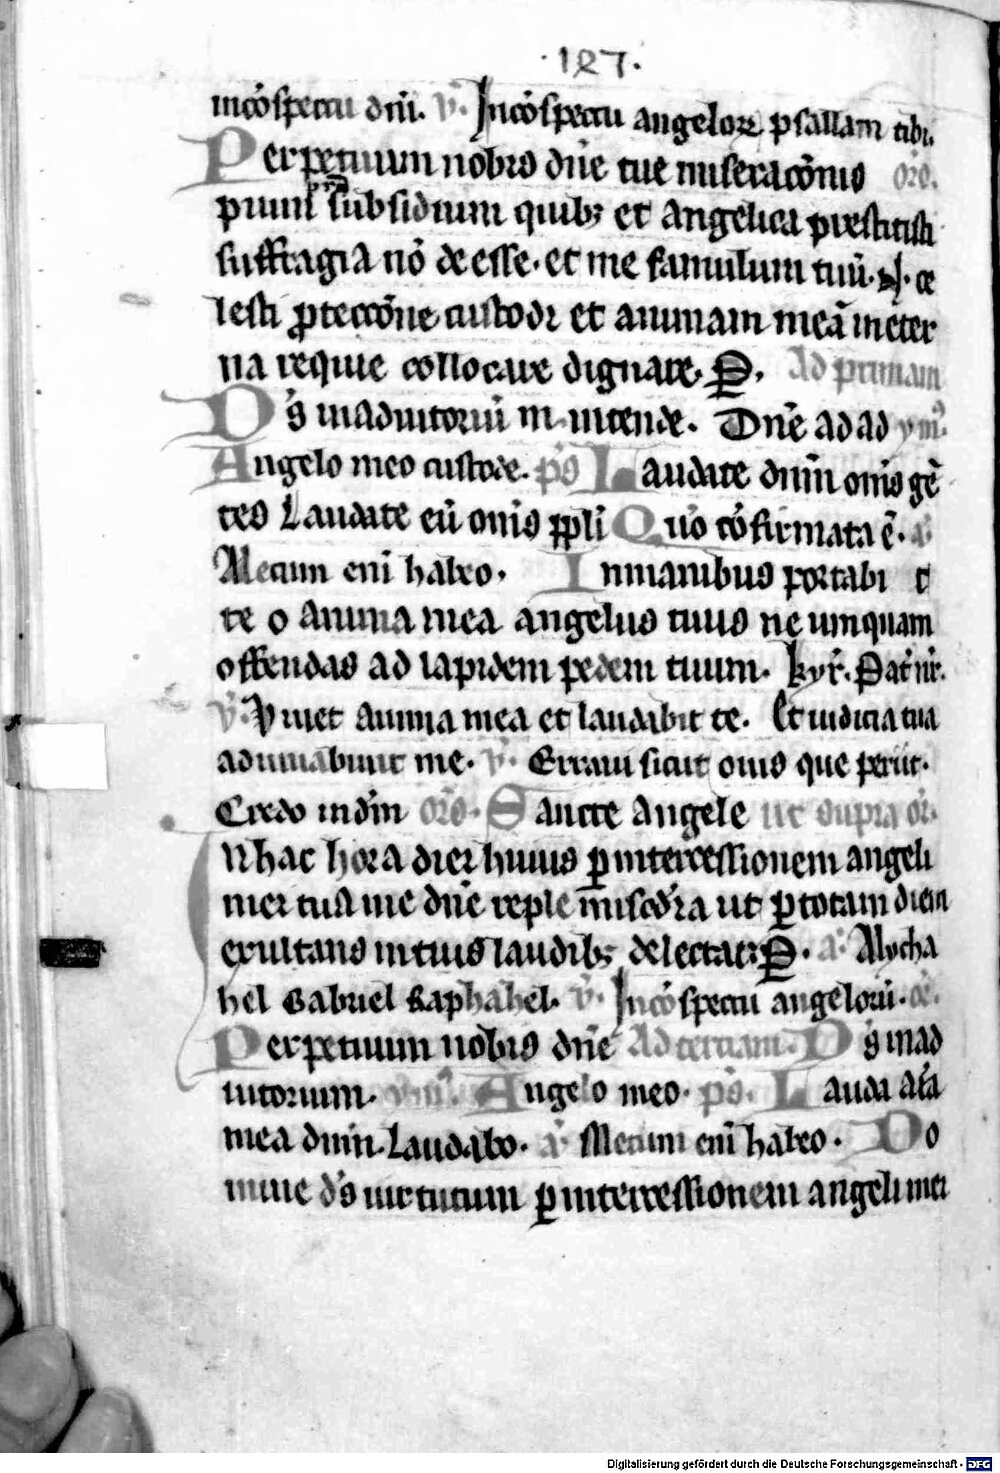 ·127·
incōspectu dn̄i. v̄. Incōspectu angelorꝝ psallam tibi.
Perpetuum nobis dn̄e tue miseracōnis oro.
prni subsidium quibꝫ et angelica prestitisti
suffragia nō deesse. et me famulum tuū. N. ce
lesti ꝓteccōne custodi et animam meā in eter
na requie collocare digna re. P. Ad primam
Ds̄ in adiutoriū m̄ intende. Dn̄e ad ad ymꝰ.
Angelo meo custode. ps̄ Laudate dn̄m om̄s gē
tes Laudate eū om̄s ppl̄i Qm̄o cōfirmata ē. a.
Mecum eni habeo. In manibus portabi t
te o anima mea angelus tuus ne umquam
offendas ad lapidem pedem tuum. kyr̄. Pat̄ nr̄.
v̄. Viuet anima mea et laudabit te. Et iudicia tua
adiuuabunt me. v̄. Erraui sicut ouis que periit.
Credo in dm̄ oro. Sancte angele ut supra or̄.
In hac hora diei huius ꝑ intercessionem angeli
mei tua me dn̄e reple mis̄cd̄ia ut ꝑ totam diem
exultans in tuis laudibꝫ delectat. P. a. Mycha
hel Gabriel Raphahel. v̄. Incōspectu angeloꝝ. oō.
Perpetuum nobis dn̄e Ad terciam. Ds̄ in ad
iutorium. ymꝰ. Angelo meo. ps̄. Lauda aīa
mea dn̄m. Laudabo. a. Mecum eni habeo. Do
mine ds̄ uirtutum ꝑ intercessionem angeli mei
Digitalisierung gefördert durch die Deutsche Forschungsgemeinschaft - DFG